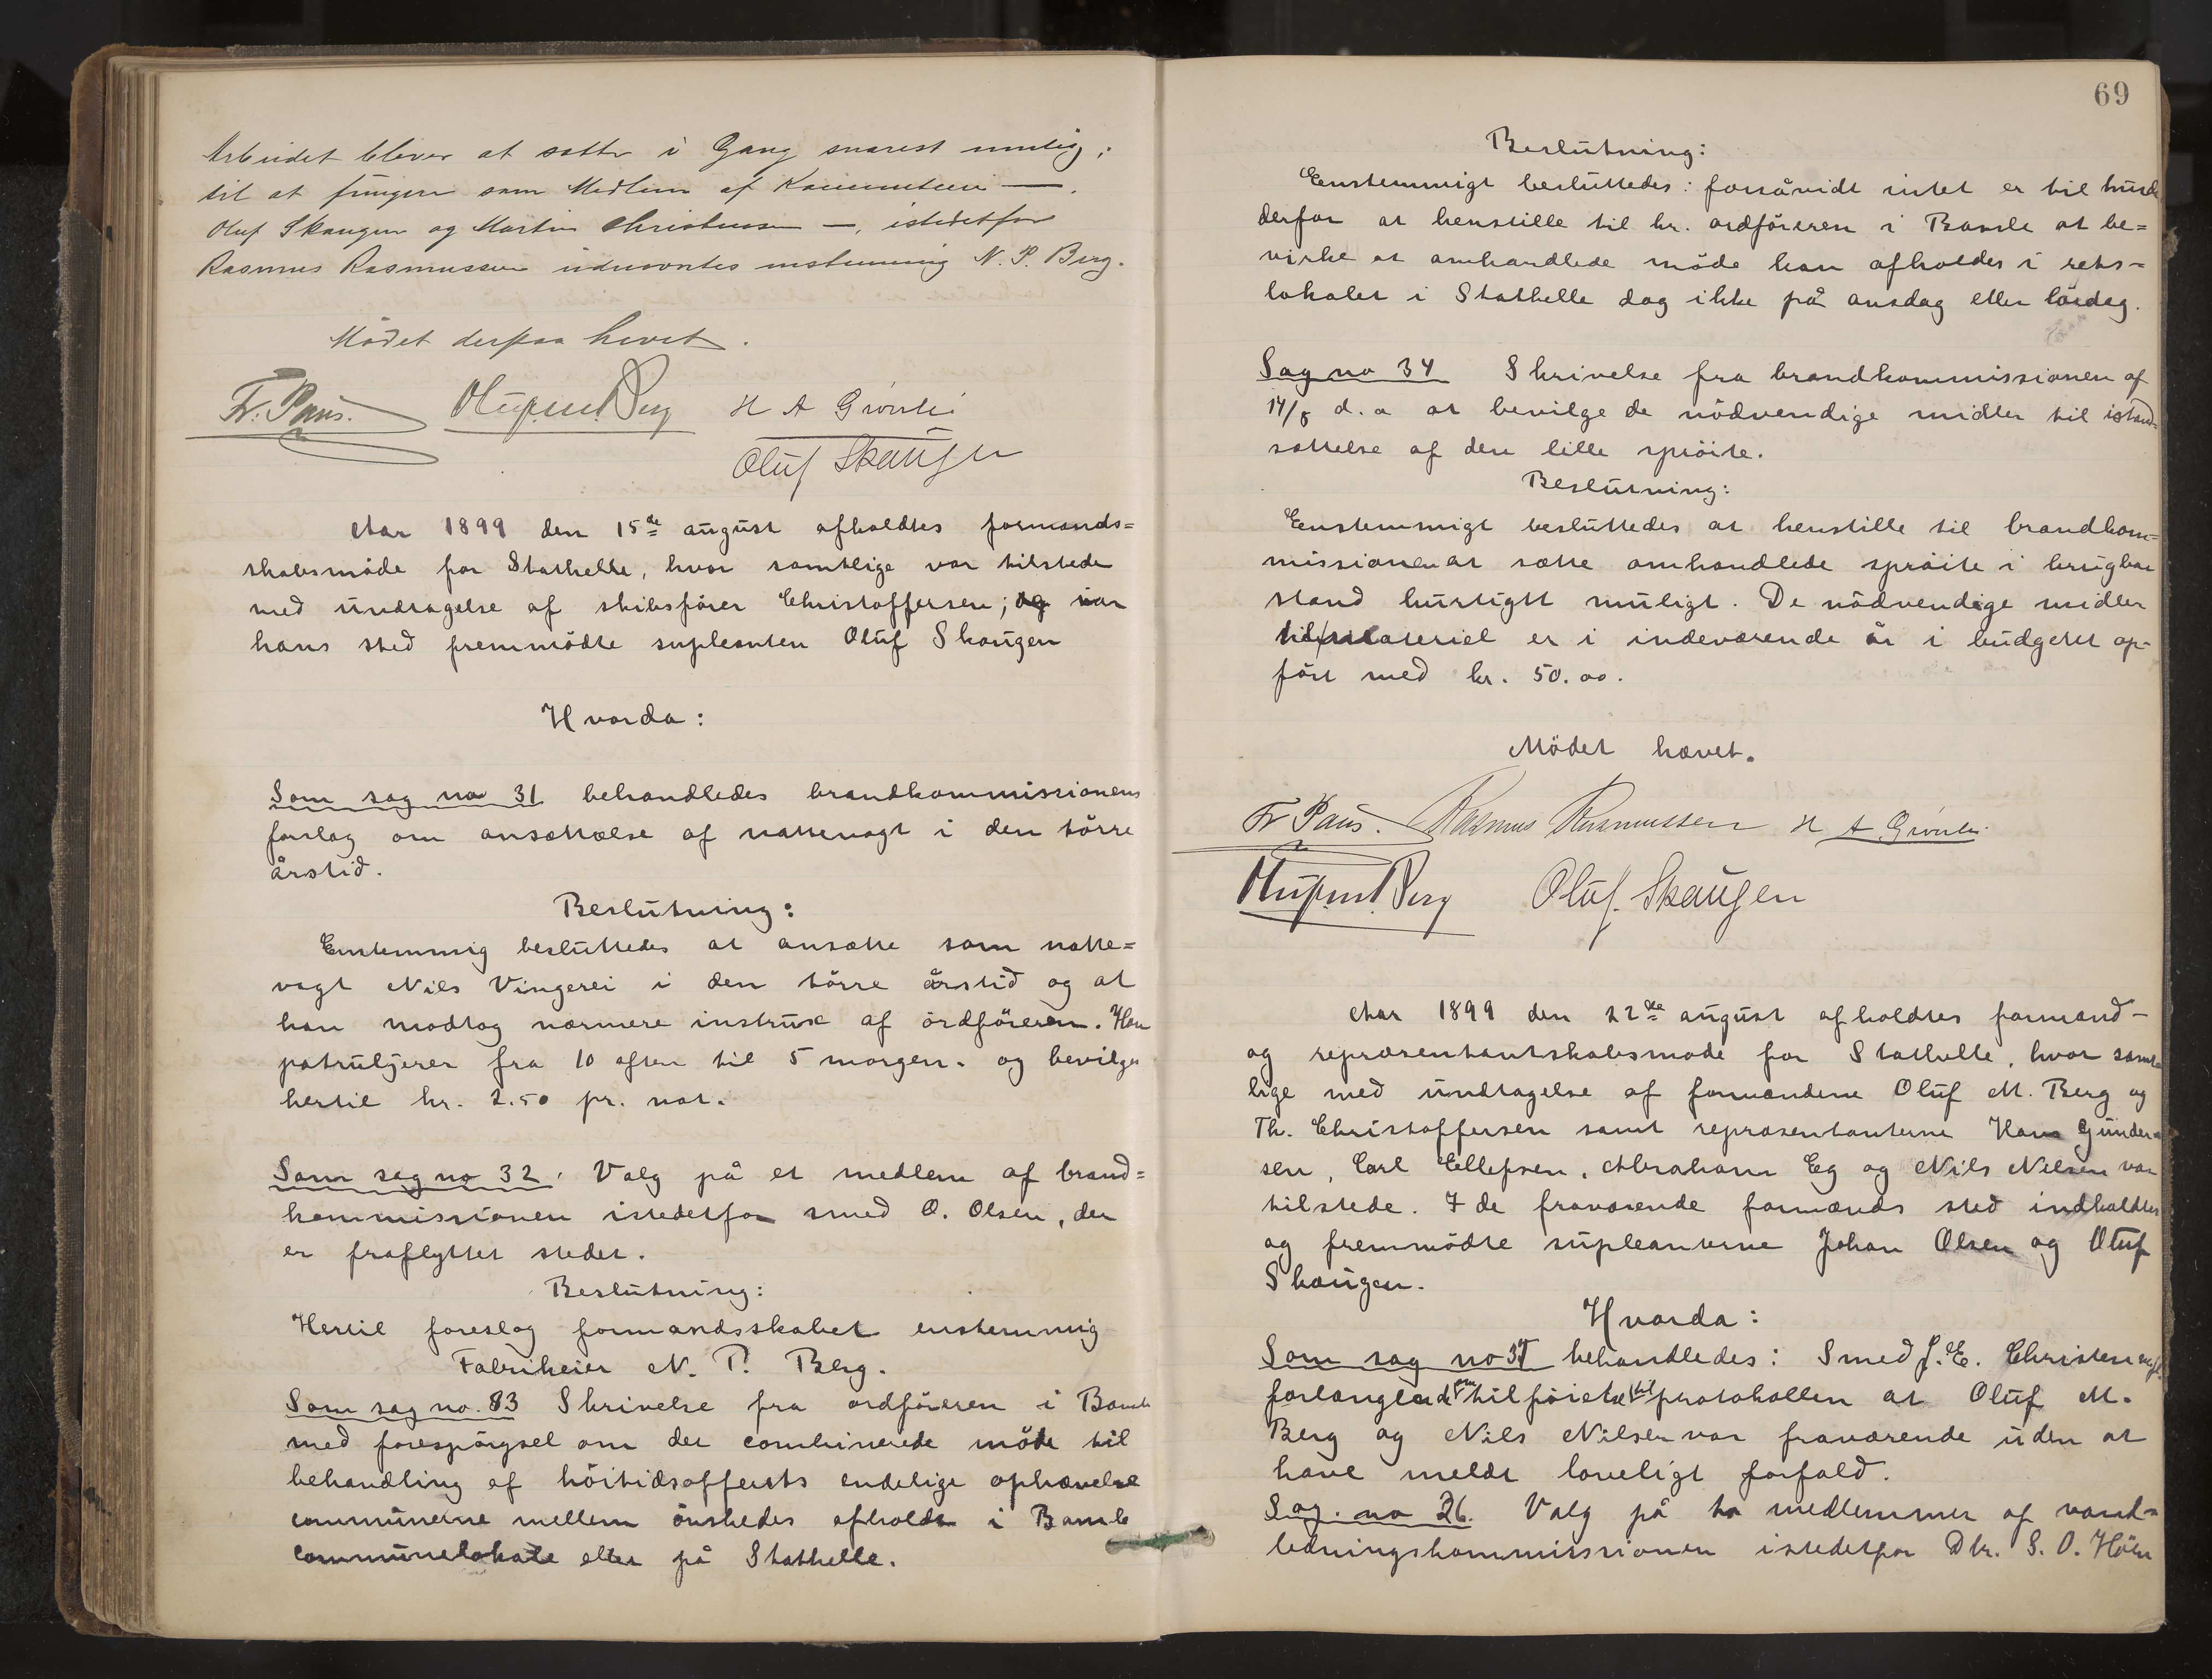 Arbeidet bliver at sætte i Gang snarest mulig;
til at fungere som Medlem af Kommiteen —.
Oluf Skaugen og Martin Christensen —, istedetfor
Rasmus Rasmussen udnævntes enstemmig N. P. Berg.
Mödet derpaa hevet.
Fr. Paus. Oluf M. Berg H A Grönli
Oluf Skaugen
Aar 1899 den 15de august afholdtes formands=
skabsmöde for Stathelle, hvor samtlige var tilstede
med undtagelse af skibsfører Christoffersen; og var
hans sted fremmödte supleanten Oluf Skaugen
Hvorda:
Som sag no 31 behandledes brandkommissionens
forslag om ansættælse af nattevagt i den törre
årstid.
Beslutning:
Enstemmig besluttedes at ansætte som natte=
vagt Nils Vingerei i den törre årstid og at
han modtog nærmere instrux af ordföreren. Han
patruljerer fra 10 aften til 5 morgen. og bevilges
hertil kr. 2.50 pr. nat.
Som sag no 32. Valg på et medlem af brand=
kommissionen istedetfor smed O. Olsen, der
er fraflyttet stedet.
Beslutning:
Hertil foreslog formandsskabet enstemmig
Fabrikeier N. P. Berg.
Som sag no. 33 Skrivelse fra ordföreren i Bamle
med forespörgsel om det combinerede möde til
behandling af höitidsoffrets endelige ophævelse
communerne mellem önskedes afholdt i Bamle
communelokale eller på Stathelle.
69
Beslutning:
Eenstemmigt besluttedes: forsåvidt intet er til hinder
derfor at henstille til hr. ordföreren i Bamle at be=
virke at omhandlede möde kan afholdes i rets=
lokalet i Stathelle dog ikke på onsdag eller lördag.
Sag no 34 Skrivelse fra brandkommissionen af
14/8 d. a at bevilge de nödvendige midler til istand=
sættelse af den lille spröite.
Beslutning:
Eenstemmigt besluttedes at henstille til brandkom=
missionen at sætte omhandlede spröite i brugbar
stand hurtigst muligt. De nödvendige midler
til materiel er i indeværende år i budgettet op=
fört med kr. 50.00.
Mödet hævet.
Fr Paus. Rasmus Rasmussen H A Grönli
Oluf M. Berg Oluf. Skaugen
Aar 1899 den 22de august afholdtes formand-
og repræsentantskabsmöde for Stathelle, hvor samt
lige med undtagelse af formændene Oluf M. Berg og
Th. Christoffersen samt repræsentanterne Hans Gunder=
sen, Carl Ellefsen, Abraham Eg og Nils Nilsen var
tilstede. I de fraværende formænds sted indkaldtes
og fremmödte supleanterne Johan Olsen og Oluf
Skaugen.
Hvorda:
Som sag no 35 behandledes: Smed J. E. Christensen
forlangende om tilföiet til protokollen at Oluf M.
Berg og Nils Nilsen var fraværende uden at
have meldt loveligt forfald.
Sag. no 36. Valg på to medlemmer af vand=
ledningskommissionen istedetfor Dhr. S. O. Höen